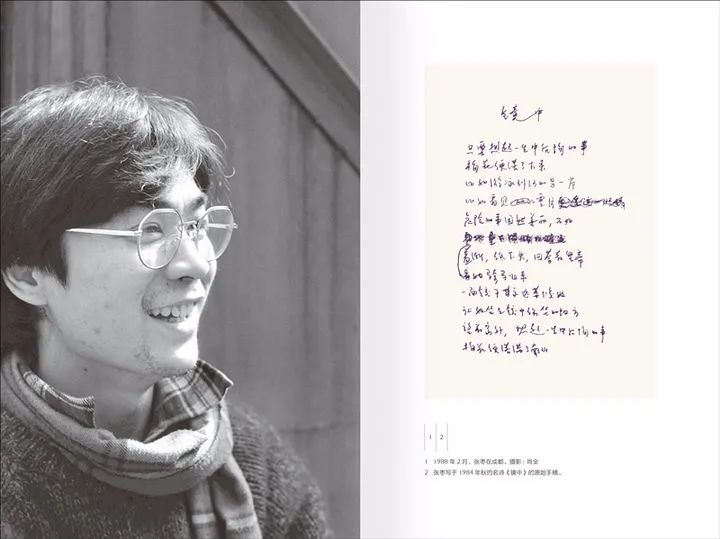 镜中
只要想起一生中后悔的事
梅花便落了下来
比如游泳到河的另一岸
比如看见
危险的事固然美丽，不如
羞惭，低下头，回答着皇帝
看她骑马归来
一面镜子永远等候她
让她坐到镜中常坐的地方
望着窗外，想起一生中后悔的事
梅花便落满了南山
1 2
1 1988 年 2 月，张枣在成都。摄影：肖全
2 张枣写于 1984 年秋的名诗《镜中》的原始手稿。